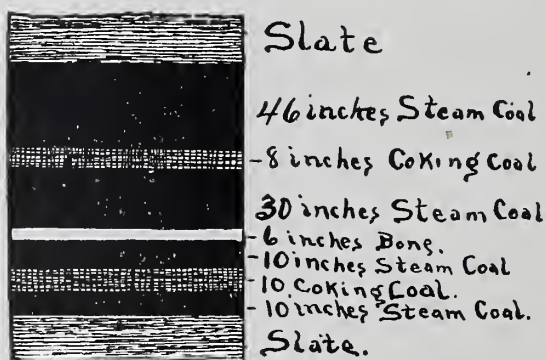 Slate
46 inches Steam Coal
-8 inches Coking Coal
30 inches Steam Coal
-6 inches Bone.
-10 inches Steam Coal
-10. Coking Coal.
-10 inches Steam Coal.
Slate.